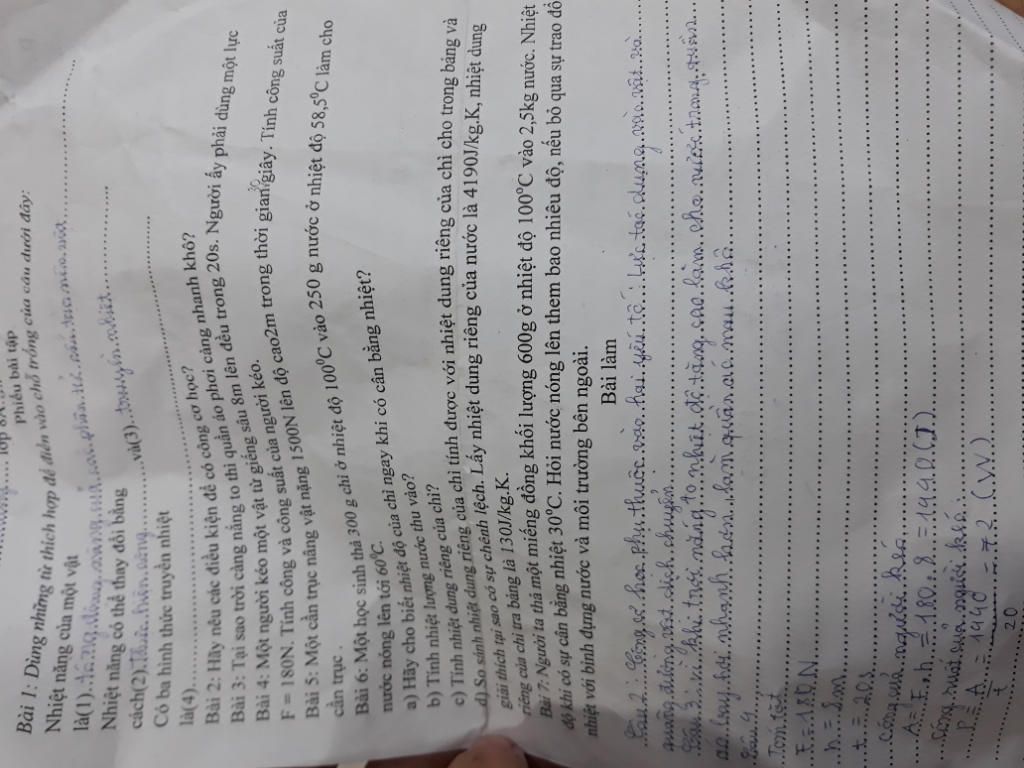 lớp 8A
Phiếu bài tập
Bài 1: Dùng những từ thích hợp để điền vào chỗ trống của câu dưới đây:
Nhiệt năng của một vật
là(1). tổng động năng của các phân tử cấu tạo nên vật
Nhiệt năng có thể thay đổi bằng
cách(2) Thực hiện công và(3). truyền nhiệt
Có ba hình thức truyền nhiệt
là(4)
Bài 2: Hãy nêu các điều kiện để có công cơ học?
Bài 3: Tại sao trời càng nắng to thì quần áo phơi càng nhanh khô?
Bài 4: Một người kéo một vật từ giếng sâu 8m lên đều trong 20s. Người ấy phải dùng một lực
F = 180N. Tính công và công suất của người kéo.
Bài 5: Một cần trục nâng vật nặng 1500N lên độ cao2m trong thời gian 30 giây. Tính công suất của
cần trục .
Bài 6: Một học sinh thả 300 g chì ở nhiệt độ 100⁰C vào 250 g nước ở nhiệt độ 58,5⁰C làm cho
nước nóng lên tới 60⁰C.
a) Hãy cho biết nhiệt độ của chì ngay khi có cân bằng nhiệt?
b) Tính nhiệt lượng nước thu vào?
c) Tính nhiệt dung riêng của chì?
d) So sánh nhiệt dung riêng của chì tính được với nhiệt dung riêng của chì cho trong bảng và
giải thích tại sao có sự chênh lệch. Lấy nhiệt dung riêng của nước là 4190J/kg.K, nhiệt dung
riêng của chì tra bảng là 130J/kg.K.
Bài 7: Người ta thả một miếng đồng khối lượng 600g ở nhiệt độ 100⁰C vào 2,5kg nước. Nhiệt
độ khi có sự cân bằng nhiệt 30⁰C. Hỏi nước nóng lên them bao nhiêu độ, nếu bỏ qua sự trao đổi
nhiệt với bình đựng nước và môi trường bên ngoài.
Bài làm
Câu 2: Công cơ học phụ thuộc vào hai yếu tố: Lực tác dụng vào vật và
quãng đường vật dịch chuyển
Câu 3: vì khi trời nắng to nhiệt độ tăng cao làm cho nước trong quần
áo bay hơi nhanh hơn làm quần áo mau khô
Câu 4
Tóm tắt
F = 180 N
h = 8m
t = 20s
Công của người kéo
A = F . h = 180 . 8 = 1440 (J)
Công suất của người kéo:
P = A/t = 1440/20 = 72 (W)